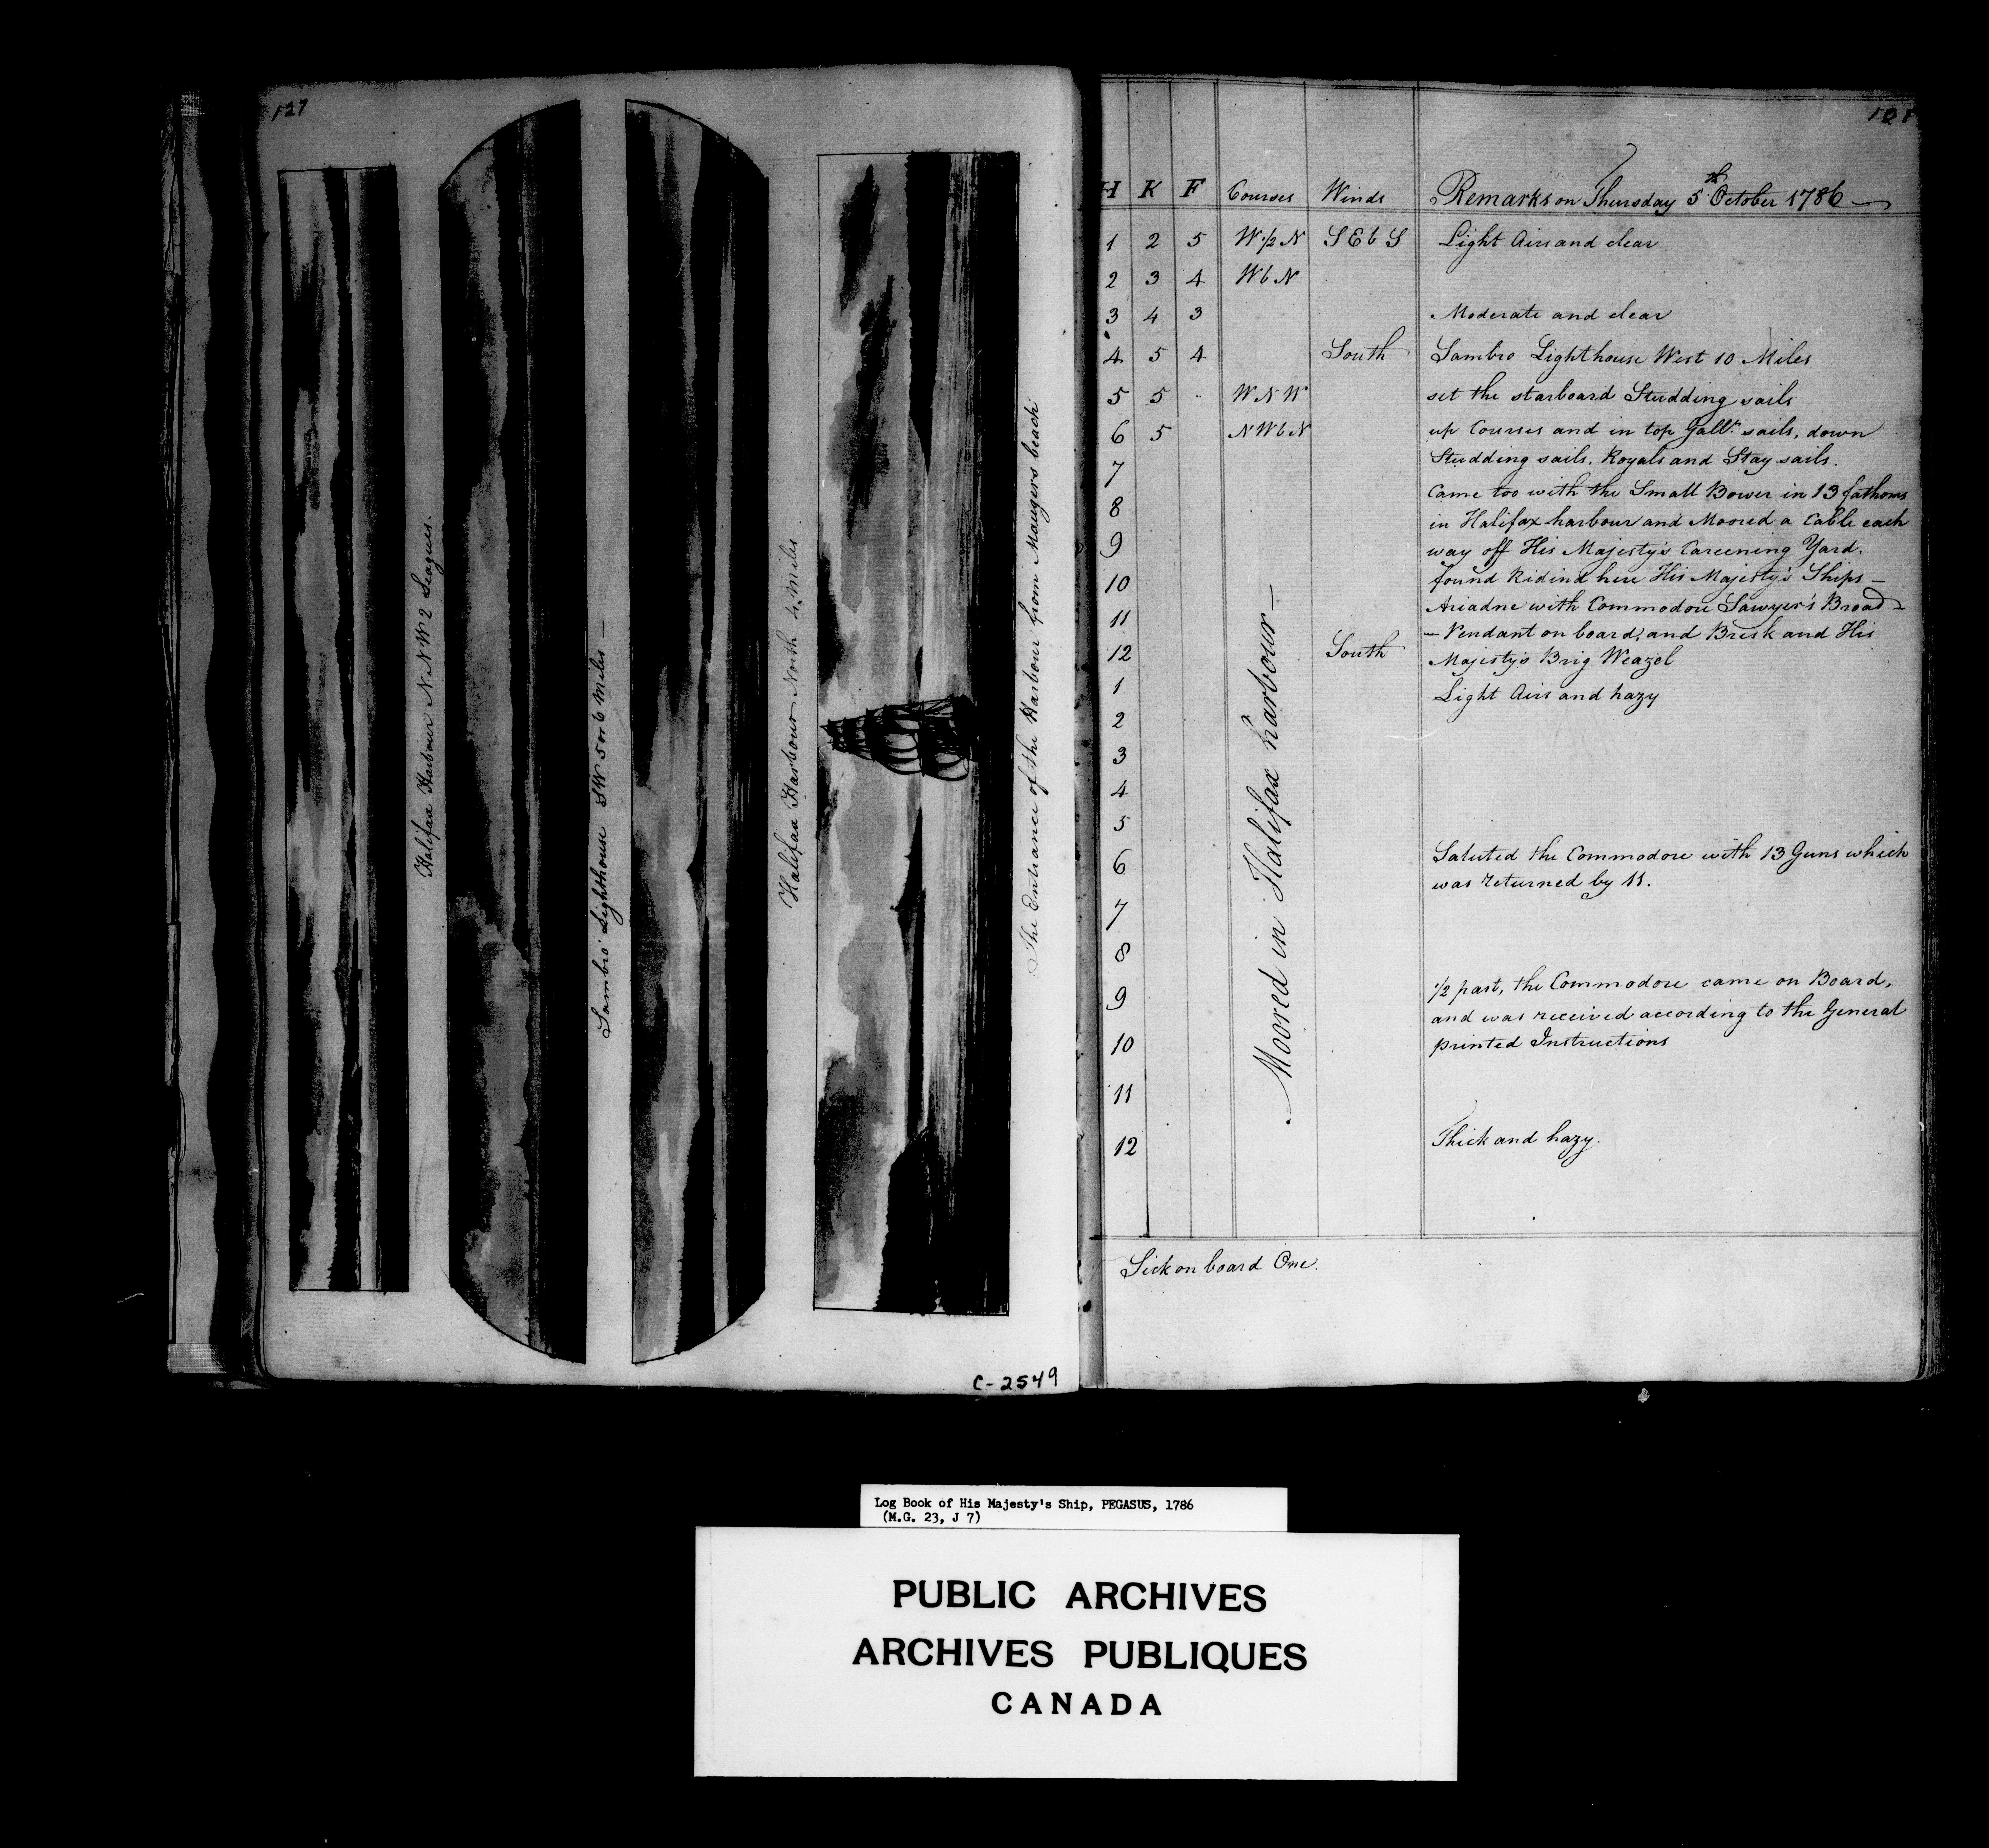 127
Halifax Harbour NNW 2 Leagues.
Sambro Lighthouse SW 5 or 6 Miles —
Halifax Harbour North 4 Miles
The Entrance of the Harbour from Maugers beach
C-2549
H K F Courses Winds Remarks on Thursday 5th October 1786 —
1 2 5 W 1/2 N S E b S Light Airs and clear
2 3 4 W b N
3 4 3 Moderate and clear
4 5 4 South Sambro Lighthouse West 10 Miles
5 5 W N W set the starboard Studding sails
6 5 N W b N up Courses and in top Gallt sails, down
7 Studding sails, Royals and Stay sails.
Came too with the Small Bower in 13 fathoms
8 in Halifax harbour and Moored a Cable each
9 way off His Majesty's Careening Yard.
10 found Ridind here His Majesty's Ships —
11 Ariadne with Commodore Sawyer's Broad
— Pendant on board, and Brisk and His
12 South Majesty's Brig Weazel
1 Light Airs and hazy
2
3
4
5
6 Saluted the Commodore with 13 Guns which
was returned by 11.
7
8
9 1/2 past, the Commodore came on Board,
and was received according to the General
10 printed Instructions
11
12 Thick and hazy.
Moored in Halifax harbour —
Sick on board One.
Log Book of His Majesty's Ship, PEGASUS, 1786
(M.G. 23, J 7)
PUBLIC ARCHIVES
ARCHIVES PUBLIQUES
CANADA